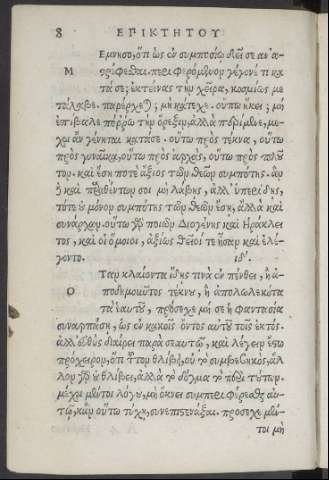 8 ΕΠΙΚΤΗΤΟΥ
Εμνησο, ὅτι ὡς ἐν συμποσίῳ δεῖ σε ἀνα-
Μ
ςρέφεσθαι. περιφερόμενον γέγονέ τι κα
τά σε; ἐκτείνας τὴν χεῖρα, κοσμίως με
τάλαβε. παρέρχεται; μὴ κάτεχε. οὔπω ἥκει; μὴ
ἐπίβαλε πόῤῥω τὴν ὄρεξιν, ἀλλὰ περίμενε, μέ-
χρι ἂν γένηται κατά σε. οὕτω πρὸς τέκνα, οὕτω
πρὸς γυναῖκα, οὕτω πρὸς ἀρχὰς, οὕτω πρὸς πλοῦ
τον. καὶ ἔσῃ ποτὲ ἄξιος τῶν θεῶν συμπότης. ἂν
ἢ καὶ παρατεθέντων σοι μὴ λάβῃς, ἀλλ' ὑπερίδῃς,
τότε οὐ μόνον συμπότης τῶν θεῶν ἔσῃ, ἀλλὰ καὶ
συνάρχων. οὕτω γὰρ ποιῶν Διογένης καὶ Ἡράκλει
τος, καὶ οἱ ὅμοιοι, ἀξίως θεῖοί τε ἦσαν καὶ ἐλέ-
γοντο. ιδ'.
Ταν κλαίοντα ἴδῃς τινὰ ἐν πένθει, ἢ ἀ-
Ο
ποδημοῦντος τέκνου, ἢ ἀπολωλεκότα
τὰ ἑαυτοῦ, πρόσεχε μή σε ἡ φαντασία
συναρπάσῃ, ὡς ἐν κακοῖς ὄντος αὐτοῦ τοῖς ἐκτός.
ἀλλ' εὐθὺς διαίρει παρὰ σεαυτῷ, καὶ λέγειν ἔςω
πρόχειρον, ὅτι τοῦτον θλίβει, οὐ τὸ συμβεβηκός, ἄλ
λον γὰρ οὐ θλίβει, ἀλλὰ τὸ δόγμα τὸ περὶ τούτων.
μέχρι μέντοι λόγου, μὴ ὄκνει συμπεριφέρεσθαι αὐ-
τῷ, κἂν οὕτω τύχῃ, συνεπιςενάξαι. πρόσεχε μέν-
τοι μὴ